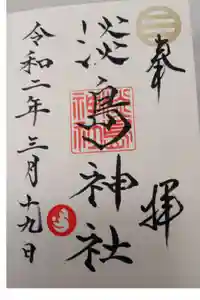 奉拝
淡島神社
令和二年三月十九日